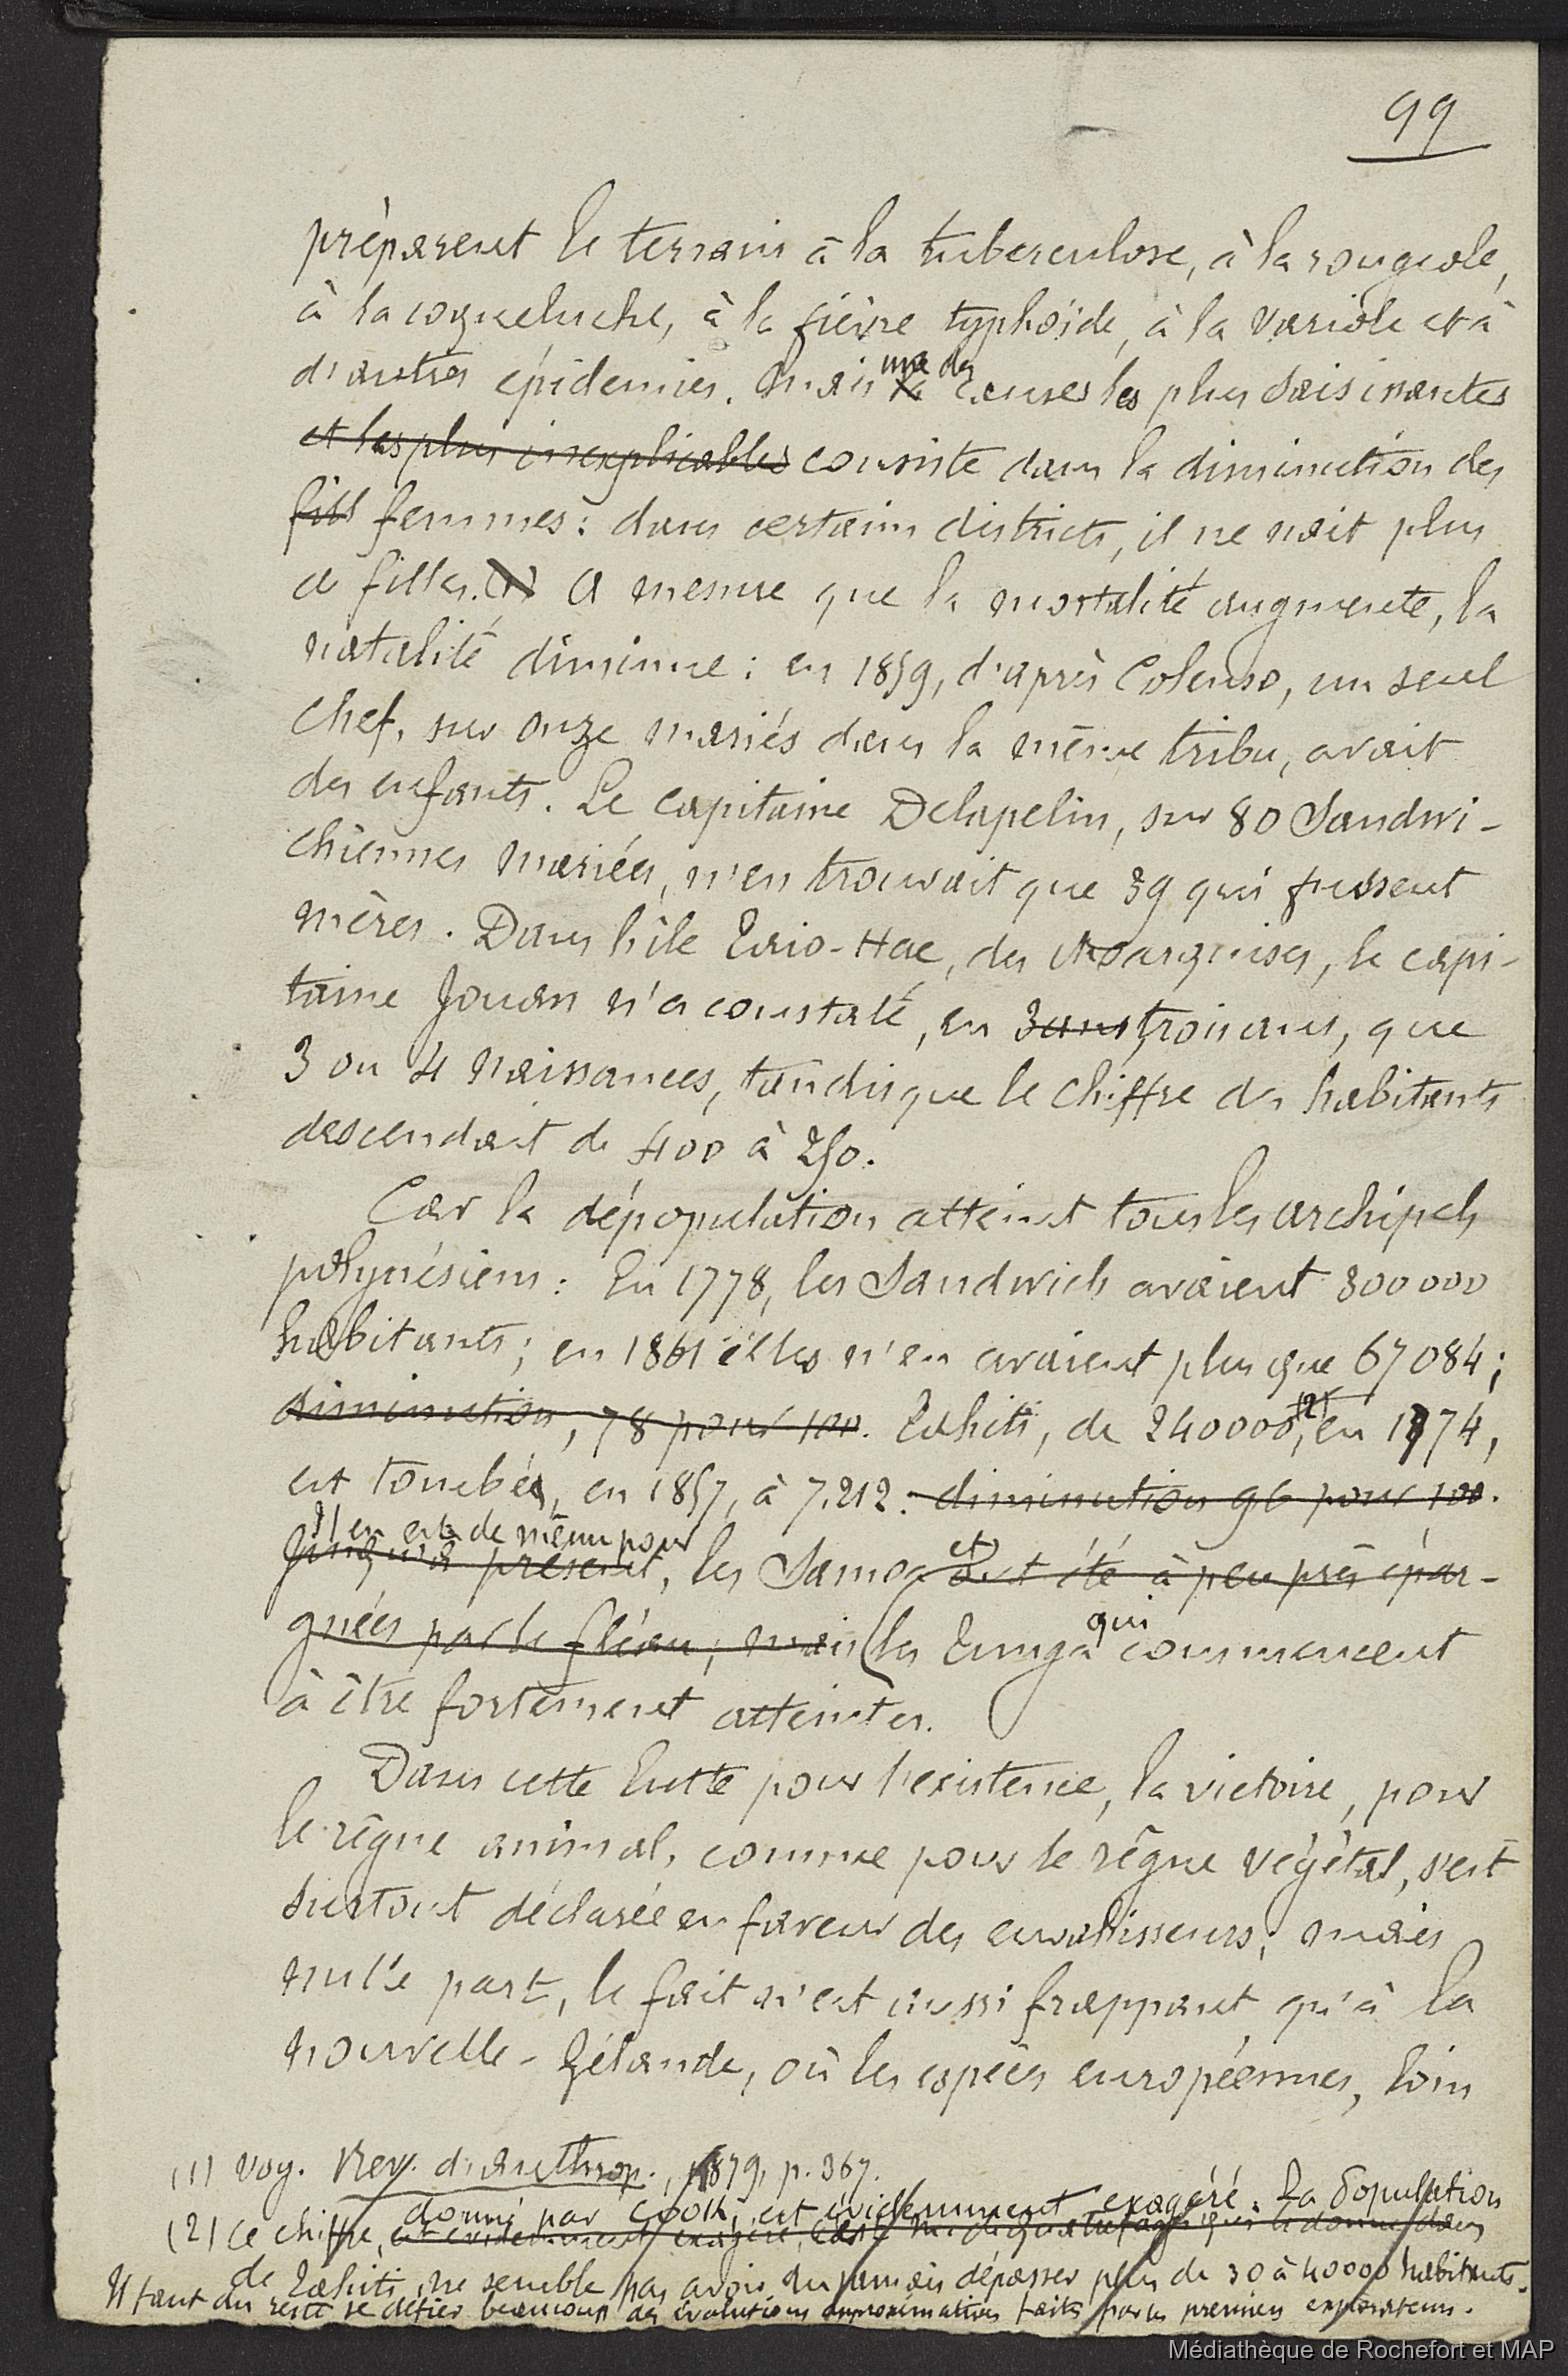 99
préparent le terrain à la tuberculose, à la rougeole,
à la coqueluche, à la fièvre typhoïde, à la variole et à
d'autres épidémies. Mais une des causes les plus saisissantes
et les plus inexplicables consiste dans la diminution des
fill femmes : dans certains districts, il ne nait plus
de filles. (1) A mesure que la mortalité augmente, la
natalité diminue : en 1859, d'après Colenso, un seul
chef, sur onze mariés dans la même tribu, avait
des enfants. Le capitaine Delapelin, sur 80 Sandwi-
chiennes mariées, n'en trouvait que 39 qui fussent
mères. Dans l'île Taio-Hae, des Marquises, le capi-
taine Jouan n'a constaté, en 3 ans, trois ans, que
3 ou 4 naissances, tandis que le chiffre des habitants
descendait de 400 à 250.
Car la dépopulation atteint tous les archipels
polynésiens : En 1778, les Sandwich avaient 300 000
habitants ; en 1861 elles n'en avaient plus que 67 084 ;
diminution, 78 pour 100. Tahiti, de 240000, (2) en 1774,
est tombée, en 1857, à 7.212. diminution 96 pour 100.
Il en est de même pour
Jusqu'à présent, les Samoa et ont été à peu près épar-
gnées par le fléau ; mais les Tunga qui commencent
à être fortement atteintes.
Dans cette lutte pour l'existence, la victoire, pour
le règne animal, comme pour le règne végétal, s'est
surtout déclarée en faveur des envahisseurs ; mais
nulle part, le fait n'est aussi frappant qu'à la
nouvelle-Zélande, où les espèces européennes, loin
(1) Voy. Rev. d'anthrop., 1879, p. 367.
donné par Cook, est évidemment exagéré. La population
(2) Ce chiffre, est évidemment exagéré,
de Tahiti ne semble pas avoir du jamais dépasser plus de 30 à 40000 habitants.
Il faut du reste se défier beaucoup des évolutions approximatives faites par les premiers explorateurs.
Médiathèque de Rochefort et MAP